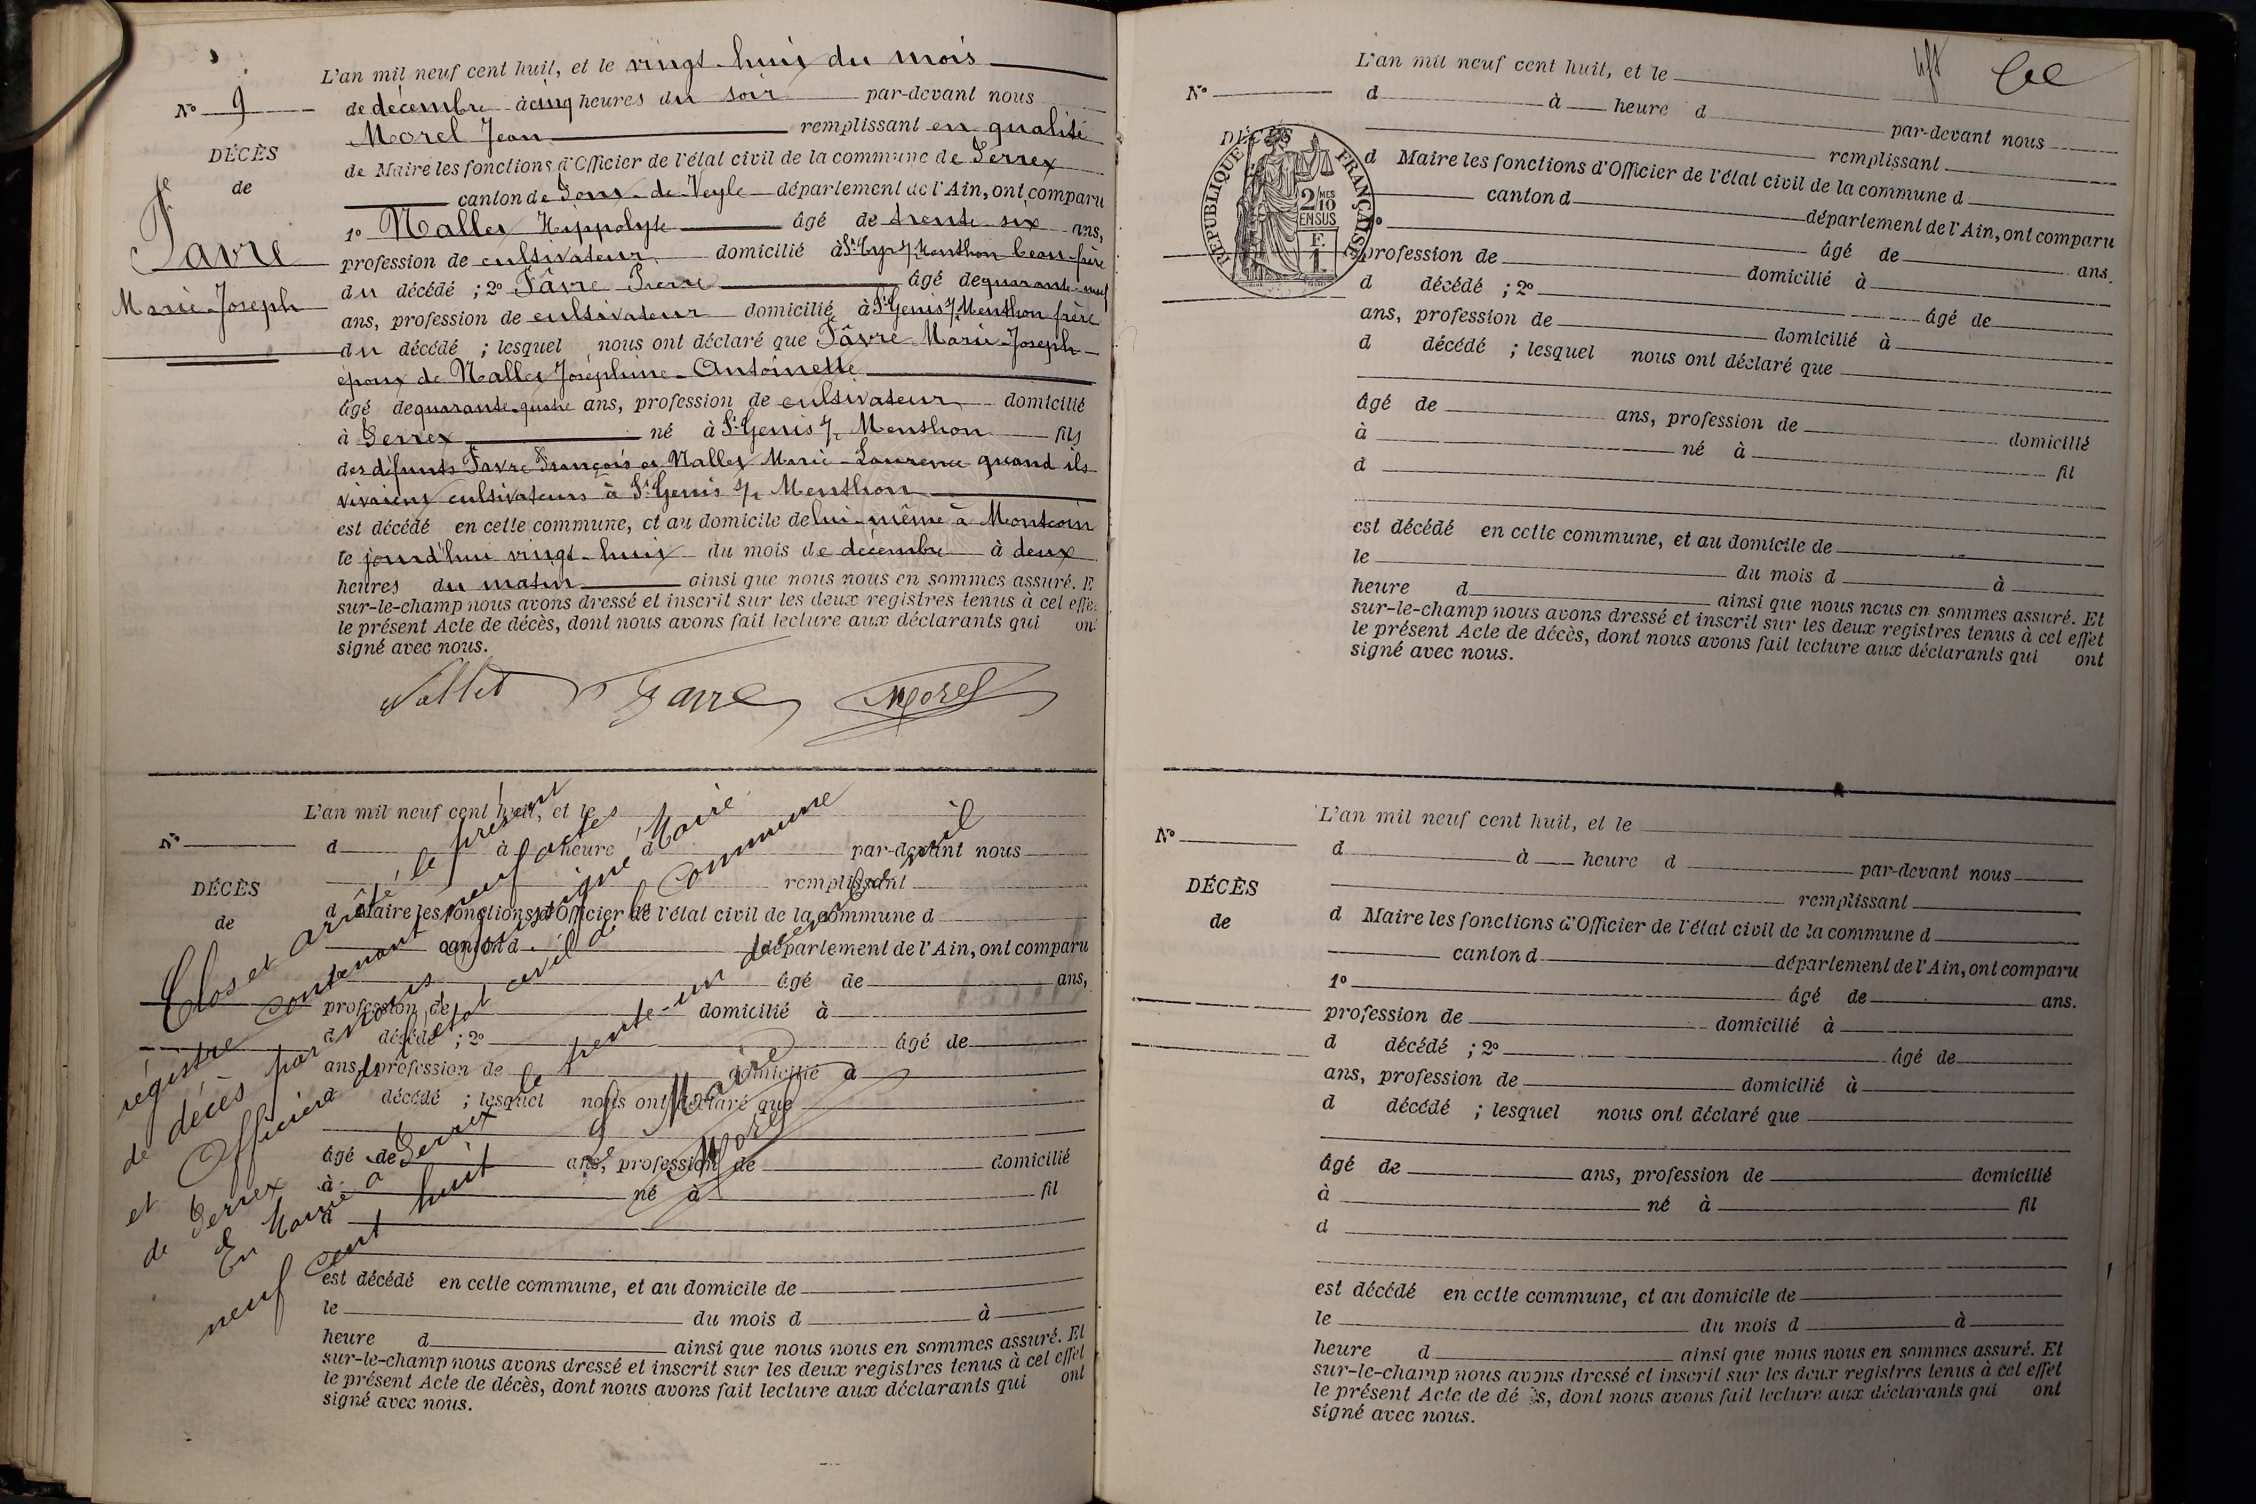 L'an mil neuf cent huit, et le vingt-huit du mois
N° 9
de décembre à cinq heures du soir par-devant nous
Morel Jean remplissant en qualité
DÉCÈS
de Maire les fonctions d'Officier de l'état civil de la commune de Perrex
de
canton de Pont-de-Veyle département de l'Ain, ont comparu
1° Nallet Hippolyte âgé de trente-six ans,
Favre
profession de cultivateur domicilié à St Cyr s/ Menthon beau-frère
du décédé ; 2° Fâvre Pierre âgé de quarante-neuf
Marie-Joseph
ans, profession de cultivateur domicilié à St Genis s/ Menthon frère
du décédé ; lesquel nous ont déclaré que Fâvre Marie-Joseph
époux de Nallet Joséphine-Antoinette
âgé de quarante-quatre ans, profession de cultivateur domicilié
à Perrex né à St Genis s/ Menthon fils
des défunts Favre François et Nallet Marie-Laurence quand ils
vivaient cultivateurs à St Genis s/ Menthon
est décédé en cette commune, et au domicile de lui-même à Montcoin
le jourd'hui vingt-huit du mois de décembre à deux
heures du matin ainsi que nous nous en sommes assuré. E
sur-le-champ nous avons dressé et inscrit sur les deux registres tenus à cet effe
le présent Acte de décès, dont nous avons fait lecture aux déclarants qui on
signé avec nous.
Nallet Favre Morel
L'an mil neuf cent huit, et le
N°
d à heure d par-devant nous
remplissant
DÉCÈS
d Maire les fonctions d'Officier de l'état civil de la commune d
de
canton d département de l'Ain, ont comparu
âgé de ans,
profession de domicilié à
d décédé ; 2° âgé de
ans, profession de domicilié à
d décédé ; lesquel nous ont déclaré que
âgé de ans, profession de domicilié
à né à fil
d
est décédé en cette commune, et au domicile de
le du mois d à
heure d ainsi que nous nous en sommes assuré. Et
sur-le-champ nous avons dressé et inscrit sur les deux registres tenus à cet effet
le présent Acte de décès, dont nous avons fait lecture aux déclarants qui ont
signé avec nous.
Clos et arrêté le présent
régistre contenant neuf actes
de décès par nous soussigné Maire
et Officier de l'état civil de la commune
de Perrex
En Mairie à Perrex le trente-un décembre mil
neuf cent huit
Le Maire
Morel
L'an mil neuf cent huit, et le
N°
d à heure d
par-devant nous
DÉCÈS
remplissant
RÉPUBLIQUE FRANÇAISE
2/10 MES
EN SUS
F.
1.
d Maire les fonctions d'Officier de l'état civil de la commune d
canton d département de l'Ain, ont comparu
âgé de ans.
profession de domicilié à
d décédé ; 2° âgé de
ans, profession de domicilié à
d décédé ; lesquel nous ont déclaré que
âgé de ans, profession de domicilié
à né à fil
d
est décédé en cette commune, et au domicile de
le du mois d à
heure d ainsi que nous nous en sommes assuré. Et
sur-le-champ nous avons dressé et inscrit sur les deux registres tenus à cet effet
le présent Acte de décès, dont nous avons fait lecture aux déclarants qui ont
signé avec nous.
L'an mil neuf cent huit, et le
N°
d à heure d par-devant nous
remplissant
DÉCÈS
d Maire les fonctions d'Officier de l'état civil de la commune d
de
canton d département de l'Ain, ont comparu
1° âgé de ans.
profession de domicilié à
d décédé ; 2° âgé de
ans, profession de domicilié à
d décédé ; lesquel nous ont déclaré que
âgé de ans, profession de domicilié
à né à fil
d
est décédé en cette commune, et au domicile de
le du mois d à
heure d ainsi que nous nous en sommes assuré. Et
sur-le-champ nous avons dressé et inscrit sur les deux registres tenus à cet effet
le présent Acte de dé s, dont nous avons fait lecture aux déclarants qui ont
signé avec nous.